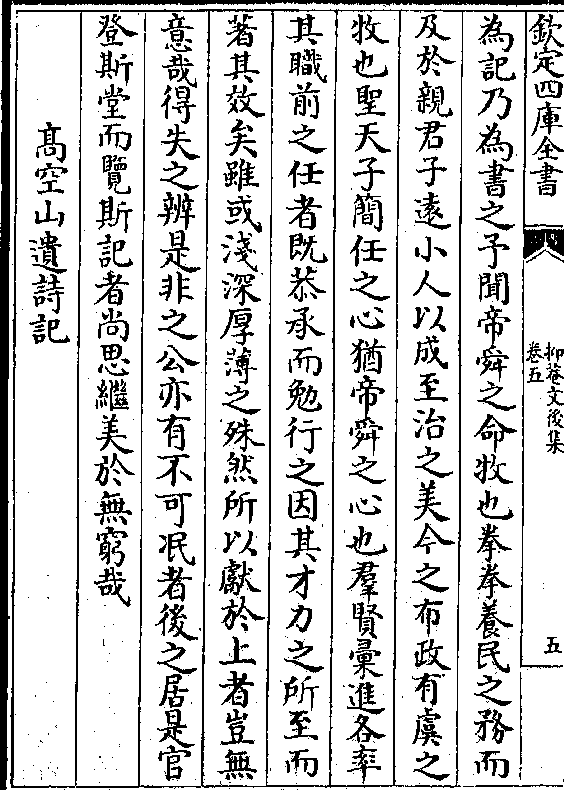 欽定四庫全書
抑菴文後集
卷五
五
為記乃為書之予聞帝舜之命牧也拳拳養民之務而
及於親君子逺小人以成至治之美今之布政有虞之
牧也聖天子簡任之心猶帝舜之心也羣賢彚進各率
其職前之任者既恭承而勉行之因其才力之所至而
著其效矣雖或淺深厚薄之殊然所以獻於上者豈無
意哉得失之辨是非之公亦有不可冺者後之居是官
登斯堂而覽斯記者尚思繼美於無窮哉
髙空山遺詩記